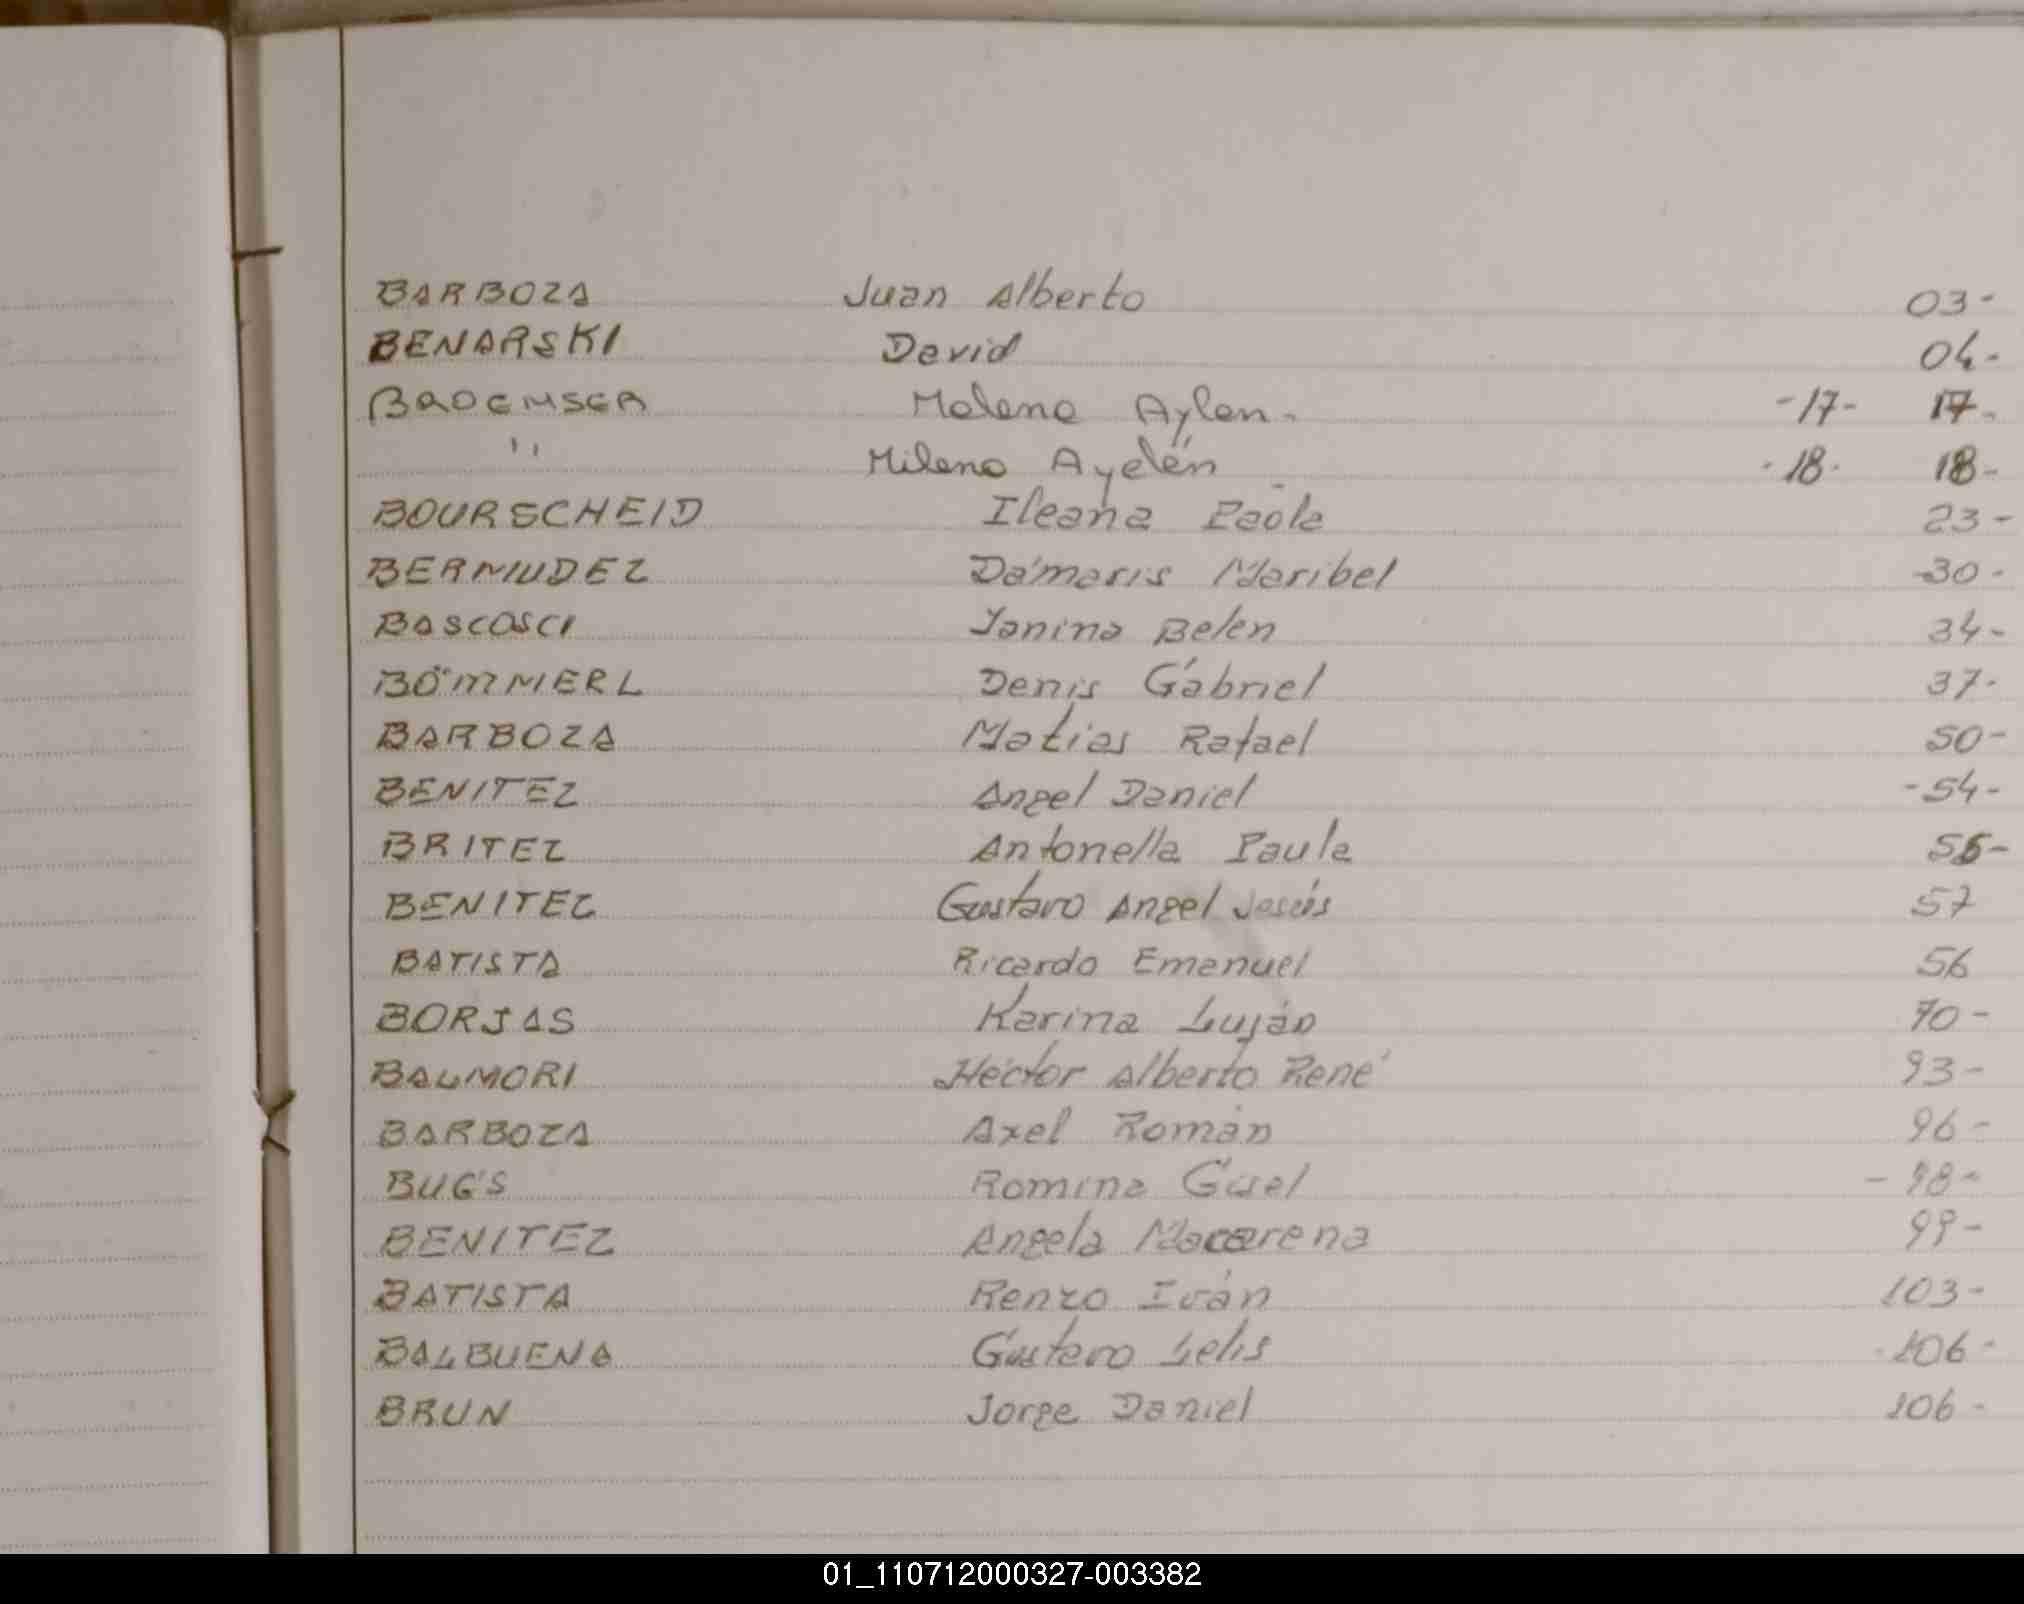 BARBOZA Juan Alberto 03-
BENARSKI David 04-
BROEMSER Malena Aylen. -17- 17-
" Milena Ayelén -18- 18-
BOURSCHEID Ileana Paola 23-
BERMUDEZ Dámaris Maribel 30-
BASCOSCI Yanina Belén 34-
BÖMMERL Denis Gabriel 37-
BARBOZA Matías Rafael 50-
BENITEZ Angel Daniel -54-
BRITEZ Antonella Paula
BENITEZ Gustavo Angel Jesús 57
BATISTA Ricardo Emanuel 56
BORJAS Karina Luján 70-
BALMORI Héctor Alberto René 93-
BARBOZA Axel Román 96-
BUGS Romina Gisel -98-
BENITEZ Angela Macarena 99-
BATISTA Renzo Iván 103-
BALBUENA Gustavo Lelis 106-
BRUN Jorge Daniel 106-
01_110712000327-003382